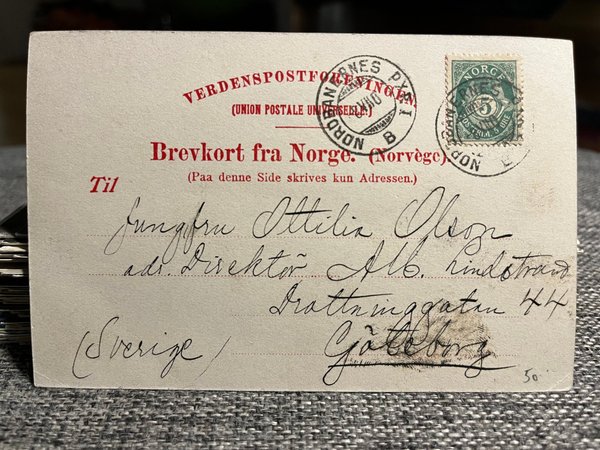 VERDENSPOSTFORENINGEN
(UNION POSTALE UNIVERSELLE.)
NORDBANERNES
B
NORGE
5
Brevkort fra Norge. (Norvège).
(Paa denne Side skrives kun Adressen.)
Til
Jungfru Ottilia Olson
adr. Direktör Alb. Lindstrand
Drottninggatan 44
(Sverige) Göteborg
50